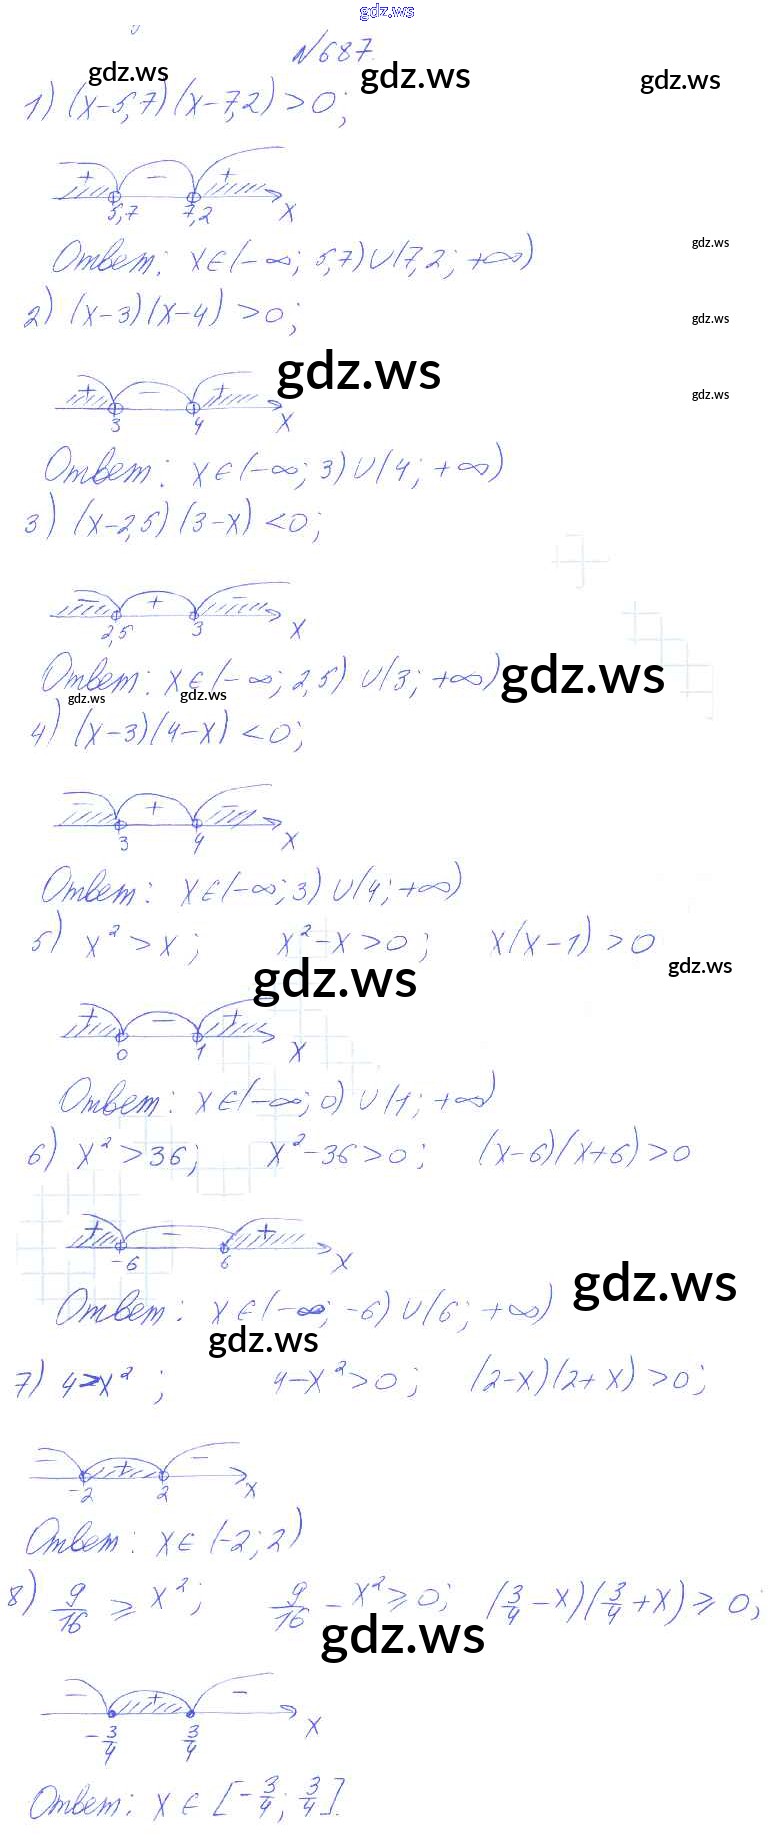 gdz.ws
№687.
gdz.ws gdz.ws gdz.ws
1) (x-5,7)(x-7,2)>0;
+ - +
5,7 7,2 x
Ответ: x∈(-∞; 5,7)∪(7,2; +∞)
gdz.ws
2) (x-3)(x-4)>0;
gdz.ws
gdz.ws
+ - +
gdz.ws
3 4 x
Ответ: x∈(-∞; 3)∪(4; +∞)
3) (x-2,5)(3-x)<0;
- + -
2,5 3 x
Ответ: x∈(-∞; 2,5)∪(3; +∞)
gdz.ws
gdz.ws gdz.ws
4) (x-3)(4-x)<0;
- + -
3 4 x
Ответ: x∈(-∞; 3)∪(4; +∞)
5) x²>x; x²-x>0; x(x-1)>0
gdz.ws gdz.ws
+ - +
0 1 x
Ответ: x∈(-∞; 0)∪(1; +∞)
6) x²>36; x²-36>0; (x-6)(x+6)>0
+ - +
-6 6 x
gdz.ws
Ответ: x∈(-∞; -6)∪(6; +∞)
gdz.ws
7) 4>x²; 4-x²>0; (2-x)(2+x)>0;
- + -
-2 2 x
Ответ: x∈(-2; 2)
8) 9/16 ≥ x²; 9/16 - x² ≥ 0; (3/4 - x)(3/4 + x) ≥ 0;
gdz.ws
- + -
-3/4 3/4 x
Ответ: x∈[-3/4; 3/4].